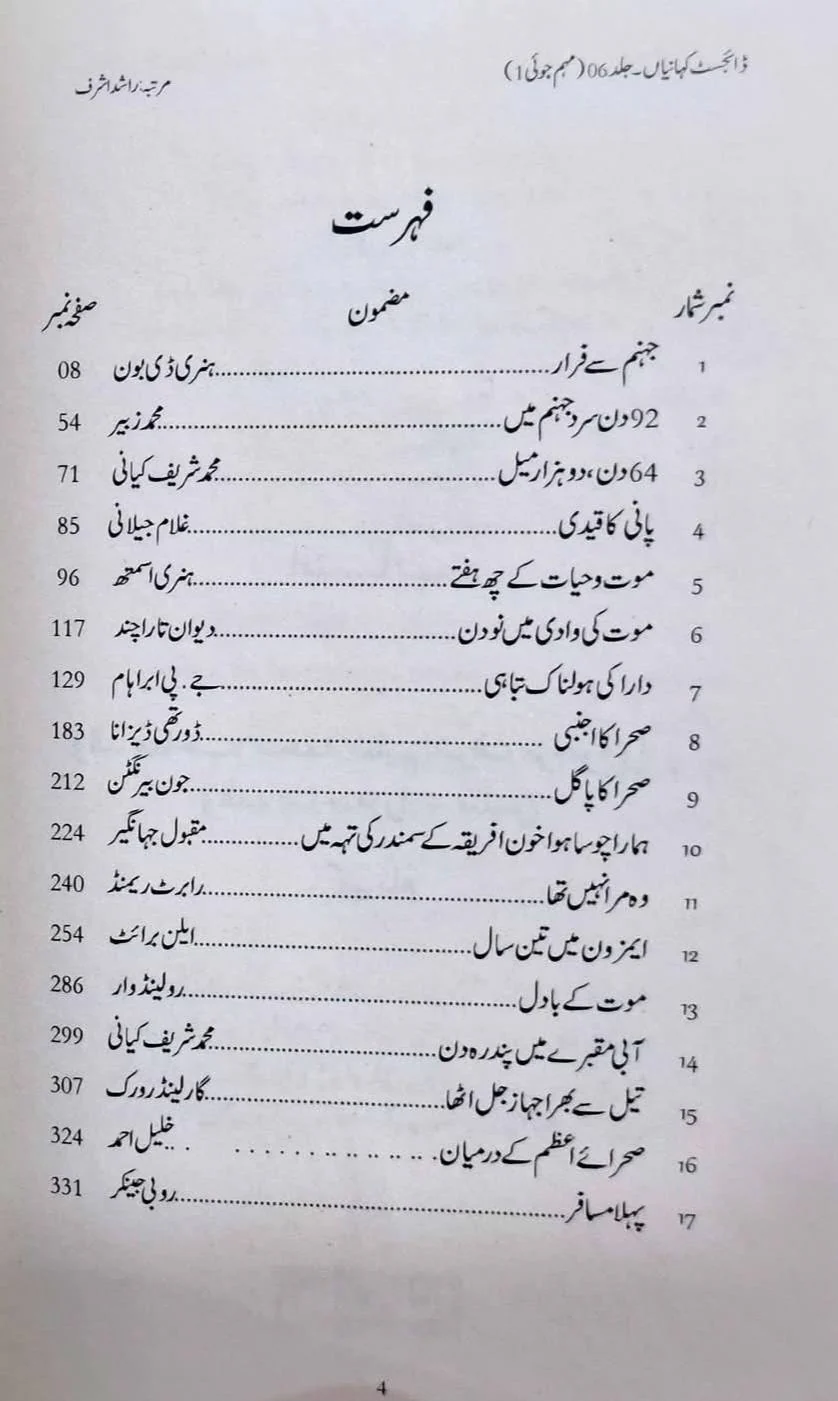 ڈائجسٹ کہانیاں۔جلد 06 (مہم جوئی 1)
مرتبہ: راشد اشرف
فہرست
نمبر شمار مضمون صفحہ نمبر
1 جہنم سے فرار................ہنری ڈی بون 08
2 92 دن سرد جہنم میں................محمد زبیر 54
3 64 دن، دو ہزار میل................محمد شریف کیانی 71
4 پانی کا قیدی................غلام جیلانی 85
5 موت و حیات کے چھ ہفتے................ہنری اسمتھ 96
6 موت کی وادی میں نو دن................دیوان تارا چند 117
7 دارا کی ہولناک تباہی................جے۔ پی ابراہام 129
8 صحرا کا اجنبی ................ڈورتھی ڈیزانا 183
9 صحرا کا پاگل................جون بیرنگٹن 212
10 ہمارا چوسا ہوا خون افریقہ کے سمندر کی تہہ میں................مقبول جہانگیر 224
11 وہ مرا نہیں تھا................رابرٹ ریمنڈ 240
12 ایمزون میں تین سال................ایلن برائٹ 254
13 موت کے بادل................رولینڈ وار 286
14 آبی مقبرے میں پندرہ دن................محمد شریف کیانی 299
15 تیل سے بھرا جہاز جل اٹھا................گارلینڈ رورک 307
16 صحرائے اعظم کے درمیان................خلیل احمد 324
17 پہلا مسافر................روبی جینکر 331
4